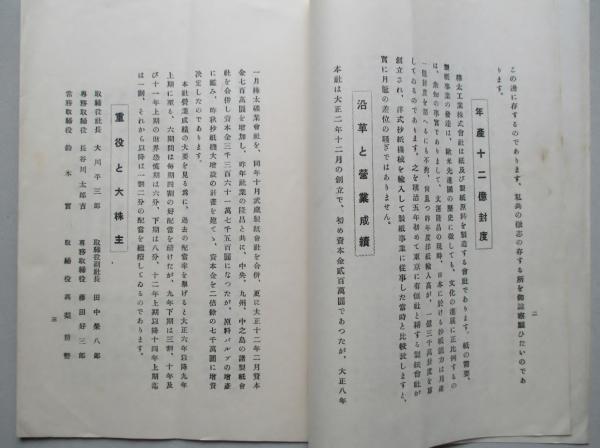 この邊に存するのであります。私共の微志の存する所を御諒察願ひたいのであ
ります。
年產十二億封度
樺太工業株式會社は紙及び製紙原料を製造する會社であります。紙の需要、
製紙事業の發達は、歐米先進國の歷史に徵しても、文化の進展に正比例するの
は、周知の事實でありまして、文運隆昌の現時、日本に於ける抄紙能力は月產
一億封度を
してゐるのであります。之を明治五年初めて東京に有恒社と稱する製紙會社が
創立され、洋式抄紙機械を輸入して製紙事業に從事した當時と比較致しますと、
實に月鼈の差位の騷ぎではありません。
沿革と營業成績
本社は大正二年十二月の創立で、初め資本金貳百萬圓であつたが、大正八年
二
一月樺太礦業會社を、同年十月武藏製紙會社を合併、更に大正十二年二月資本
金七百萬圓を增加し、昨年社業の隆昌と共に、中央、九州、中之島の諸製紙會
社を合併し資本金三千三百六十一萬七千五百圓になつたが、原料パルプの增產
に鑑み、昨秋抄紙機大增設の計畫を樹てゝ、資本金を二倍餘の七千萬圓に增資
決定したのであります。
本社營業成績の大要を見る爲に、過去の配當率を擧げると大正六年以降九年
上期に至る、六期間は每期四割の好配當を續けたが、九年下期は三割、十年及
び十一年上期の世界恐慌期は六分、下期は八分、十二年上期以降十四年上期迄
は一割、それから以降は一割二分の配當を繼續してゐるのであります。
重役と大株主
取締役社長 大川平三郎 取締役副社長 田中榮八郎
專務取締役 長谷川太郎吉 專務取締役 藤田好三郎
常務取締役 鈴木實 取締役 高
三